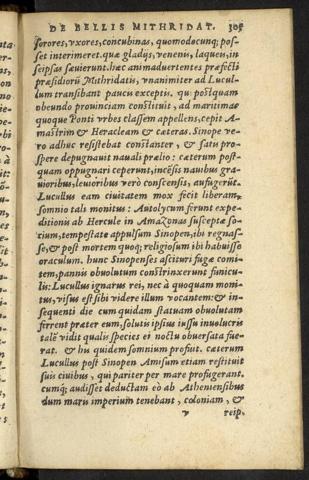 DE BELLIS MITHRIDAT. 305
sorores, vxores, concubinas, quomodocunq; pos-
set interimeret. quæ gladijs, venenis, laqueu, in
seipsas sæuierunt. hæc animaduertentes præfecti
præsidiorū Mithridatis, vnanimiter ad Lucul
lum transibant paucis exceptis, qui postquam
obeundo prouinciam constituit, ad maritimas
quoque Ponti vrbes classem appellens, cepit A-
mastrim & Heracleam & cæteras. Sinope ve-
ro adhuc resistebat constanter, & satu pro-
spere depugnauit nauali prælio: cæterum post-
quam oppugnari ceperunt, incēsis nauibus gra-
uioribus, leuioribus verò conscensis, aufugerūt.
Lucullus eam ciuitatem mox fecit liberam,
somnio tali monitus: Autolycum ferunt expe-
ditionis ab Hercule in Amazonas susceptæ so-
cium, tempestate appulsum Sinopen, ibi regnas-
se, & post mortem quoq; religiosum ibi habuisse
oraculum. hunc Sinopenses asciturι fugæ comi-
tem, pannis obuolutum constrinxerunt funicu-
lis: Lucullus ignarus rei, nec à quoquam moni-
tus, visus est sibi videre illum vocantem: & in-
sequenti die cum quidam statuam obuolutam
ferrent præter eum, solutis ipsius iussu inuolucris
talē vidit qualis species ei noctu obuersata fue-
rat. & hu quidem somnium profuit. cæterum
Lucullus post Sinopen Amisum etiam restituit
suis ciuibus, qui pariter per mare profugerant.
cumq; audisset deductam eò ab Atheniensibus
dum maris imperium tenebant, coloniam, &
v reip.